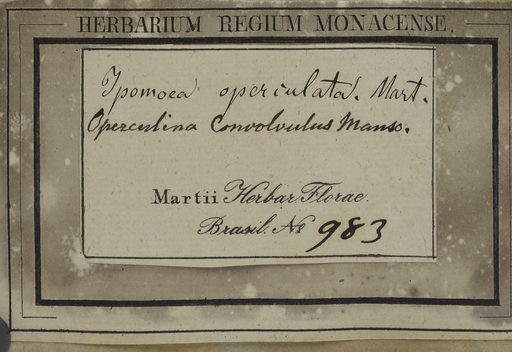 HERBARIUM REGIUM MONACENSE.
Ipomoea operculata. Mart.
Operculina Convolvulus Manso.
Martii Herbar. Florae.
Brasil. No 983